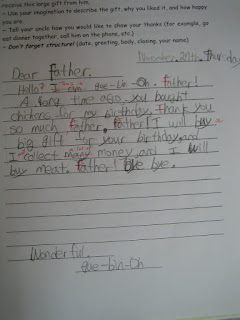 receive this large gift from him.
- Use your imagination to describe the gift, why you liked it, and how happy
you are.
- Tell your uncle how you would like to show your thanks (for example, go
eat dinner together, call him on the phone, etc.)
- Don't forget structure! (date, greeting, body, closing, your name)
November, 2016, Thur day
Dear father.
Hello? I am Gue-Bin-Oh. father!
A long time ago you bought
chickens for my birthday. Thank you
so much father. father! I will buy a
big gift for your birthday and
I collect many money and I will
buy meat. father! bye bye.
Wonderful.
Gue-bin-Oh